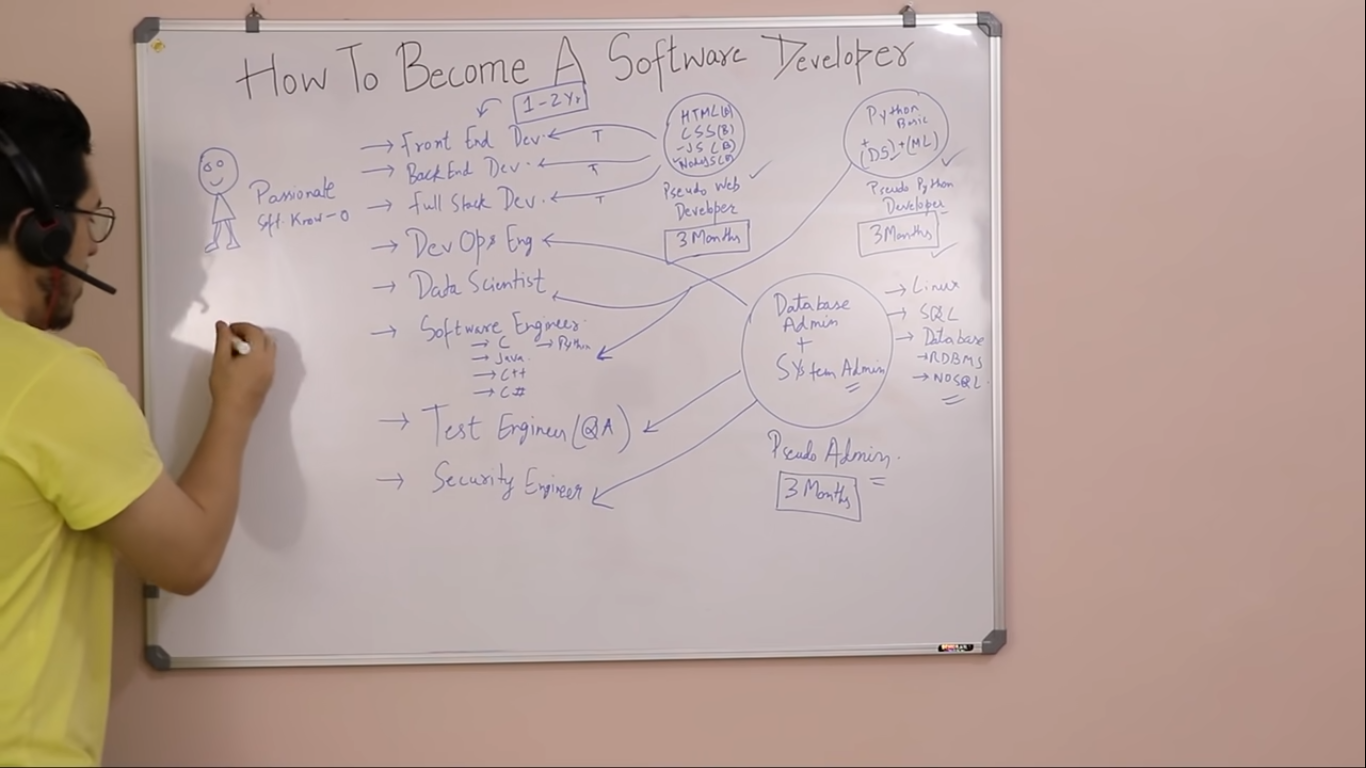 How To Become A Software Developer
1-2Yr
→ Front End Dev.
→ BackEnd Dev.
→ Full Stack Dev.
→ DevOps Eng
→ Data Scientist
→ Software Engineer.
→ C → Python
→ Java
→ C++
→ C#
→ Test Engineer (QA)
→ Security Engineer
Passionate
Soft. Know - 0
T
T
T
HTML(B)
CSS(B)
-JS(B)
NodeJS(B)
Pseudo Web
Developer
3 Months
Python
Basic
+
(DS)+(ML)
Pseudo Python
Developer
3 Months
Database
Admin
+
System Admin
→ Linux
→ SQL
→ Database
→ RDBMS
→ NOSQL.
Pseudo Admin.
3 Months